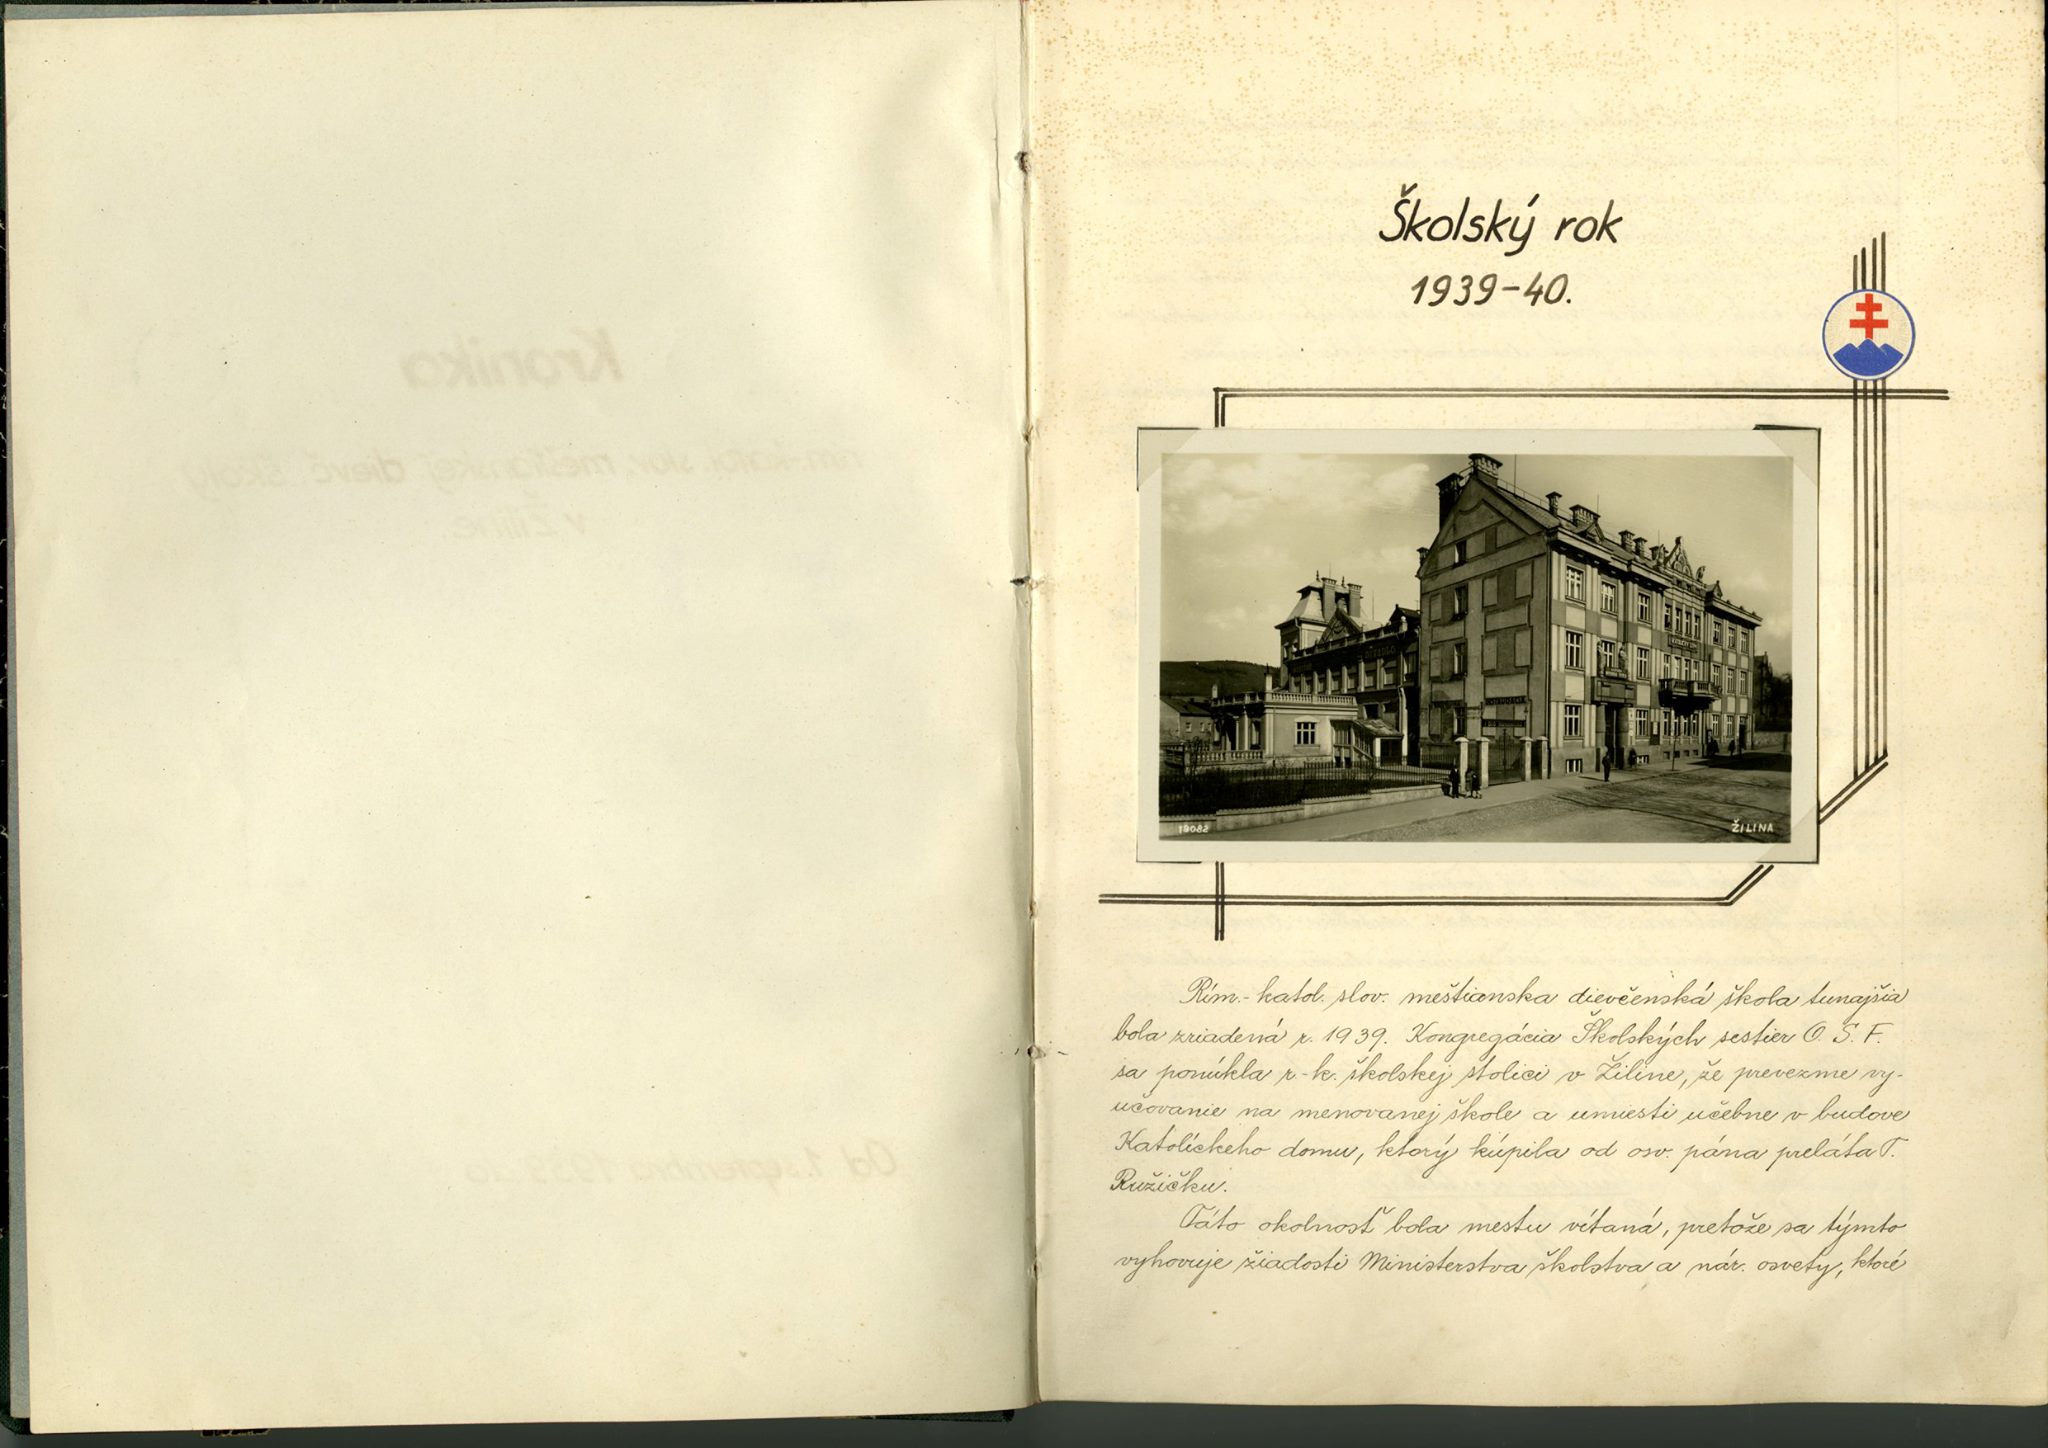 Kronika
slov. meštianskej dievč. školy
v Žiline.
Školský rok
1939-40.
DIVADLO
19082
ŽILINA
Rím.-katol. slov. meštianska dievčenská škola tunajšia
bola zriadená r. 1939. Kongregácia Školských sestier O. S. F.
sa ponúkla r.-k. školskej stolici v Žiline, že prevezme vy-
učovanie na menovanej škole a umiesti učebne v budove
Katolíckeho domu, ktorý kúpila od osv. pána preláta T.
Ružičku.
Táto okolnosť bola mestu vítaná, pretože sa týmto
vyhovuje žiadosti Ministerstva školstva a nár. osvety, ktoré